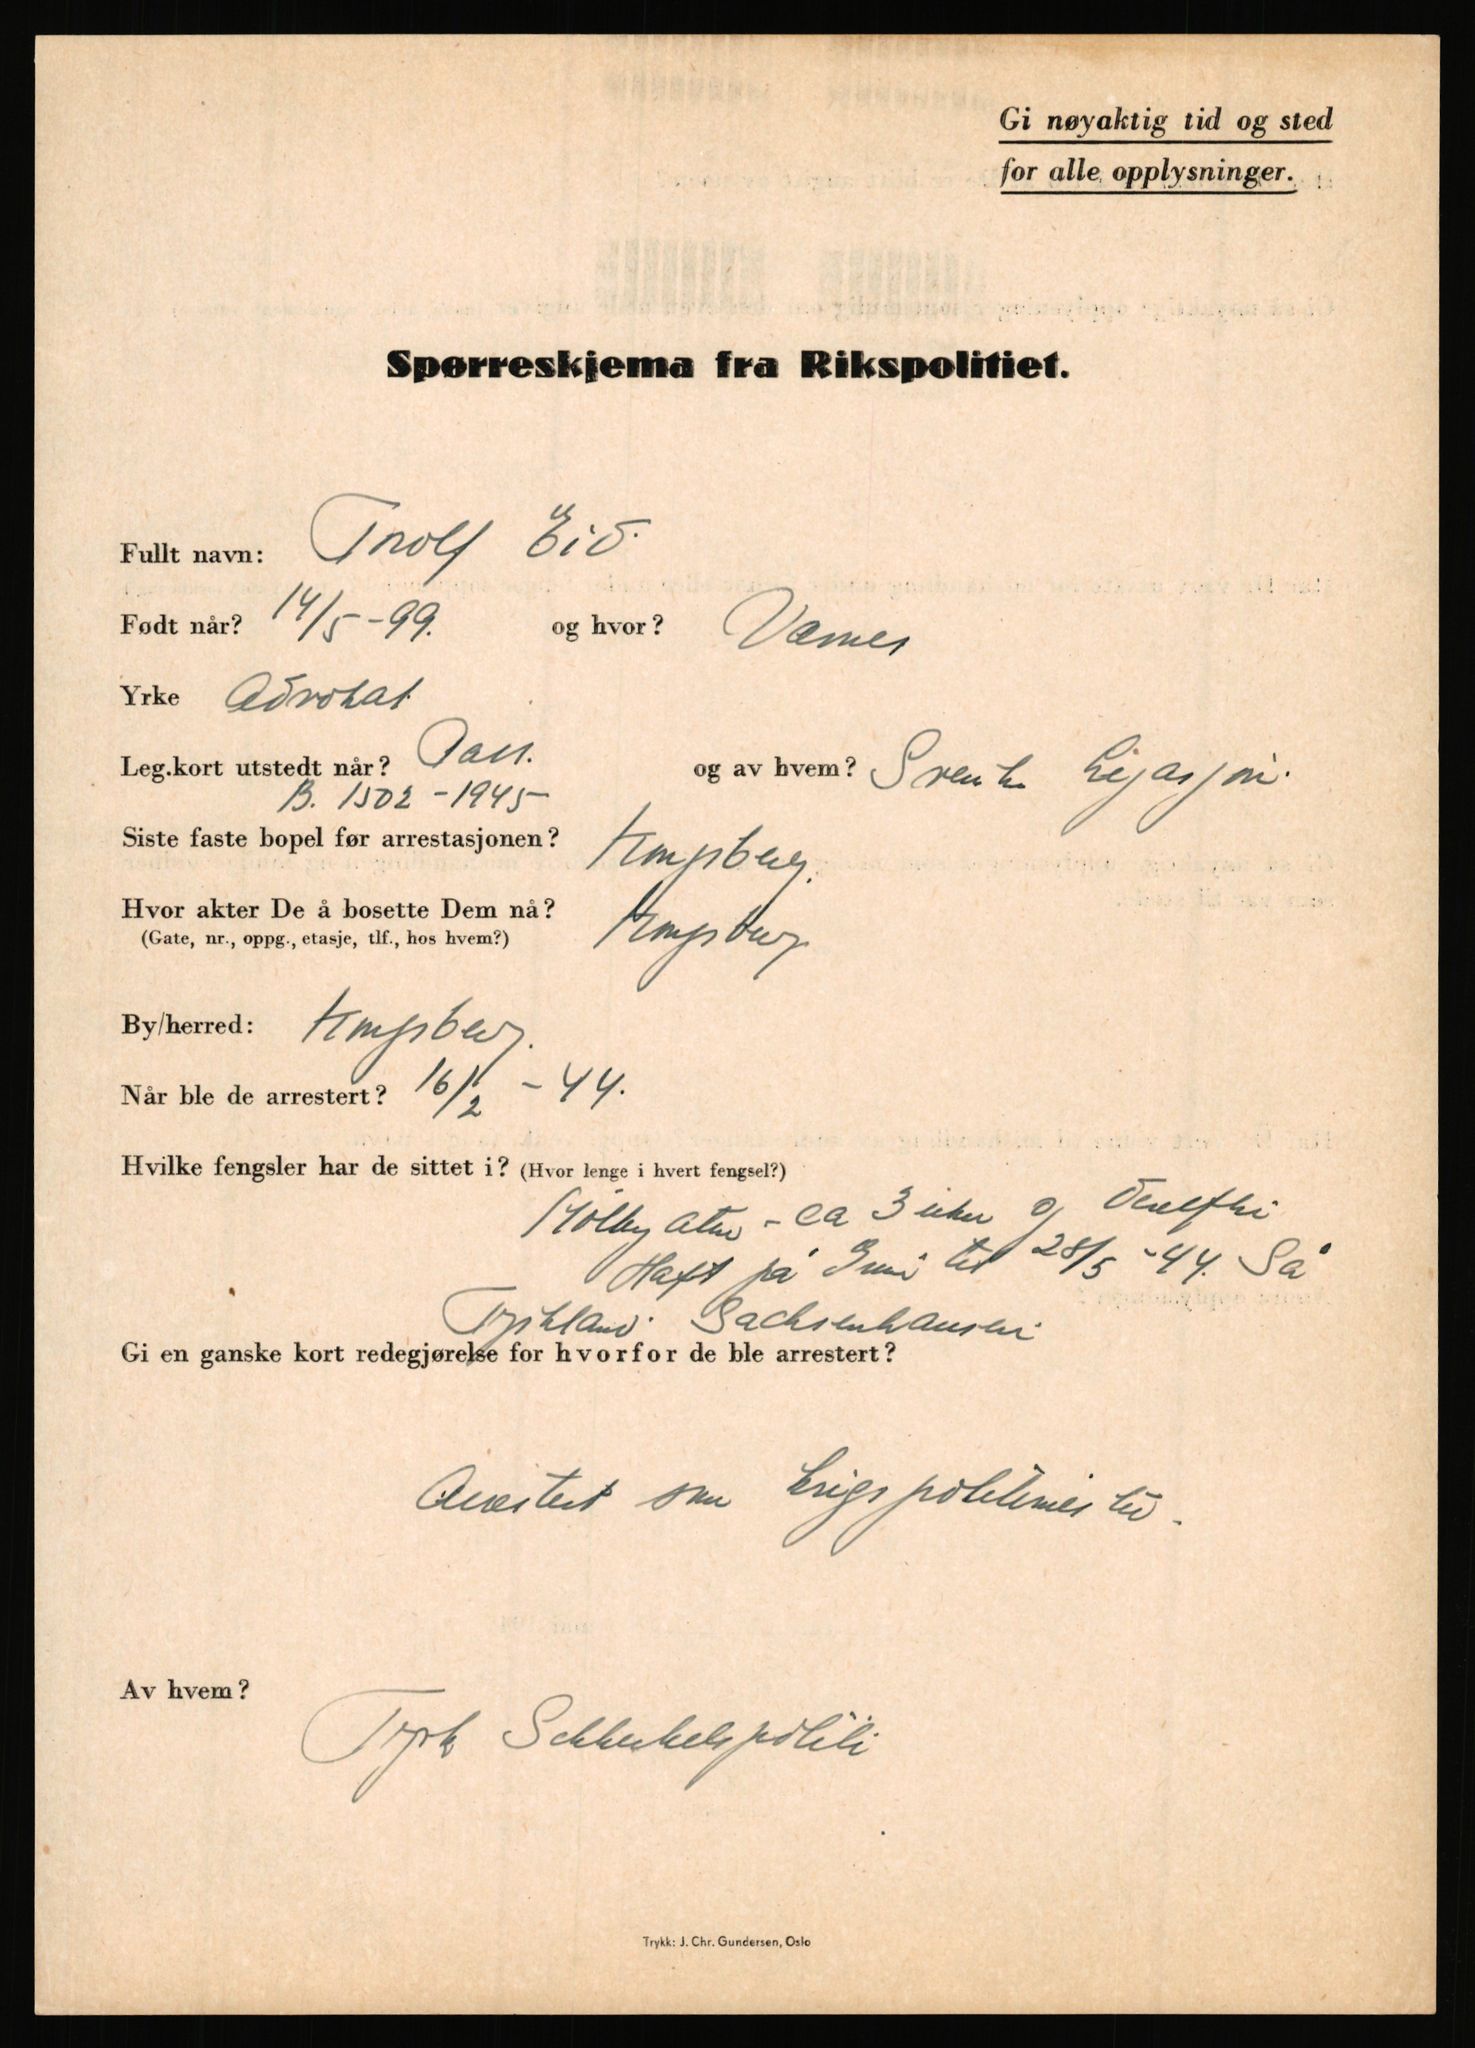 Gi nøyaktig tid og sted
for alle opplysninger.
Spørreskjema fra Rikspolitiet.
Fullt navn: Trolf Eid.
Født når? 14/5-99. og hvor? Værnes
Yrke Advokat
Leg.kort utstedt når? Pass. og av hvem? Svenske Legasjon.
B. 1502-1945
Siste faste bopel før arrestasjonen? Kongsberg.
Hvor akter De å bosette Dem nå? Kongsberg
(Gate, nr., oppg., etasje, tlf., hos hvem?)
By/herred: Kongsberg.
Når ble de arrestert? 16/2-44.
Hvilke fengsler har de sittet i? (Hvor lenge i hvert fengsel?)
- ca 3 uker og
på Grini til 28/5-44. Så
Tyskland. Sachsenhausen
Gi en ganske kort redegjørelse for hvorfor de ble arrestert?
Arrestert som krigspolitimester.
Av hvem?
Tysk Sikkerhetspoliti
Trykk: J. Chr. Gundersen, Oslo